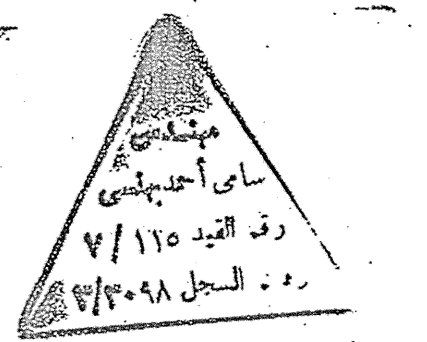 مهندس
سامى أحمد بهنسى
رقم القيد ٧/١١٥
السجل ٣/٣٠٩٨